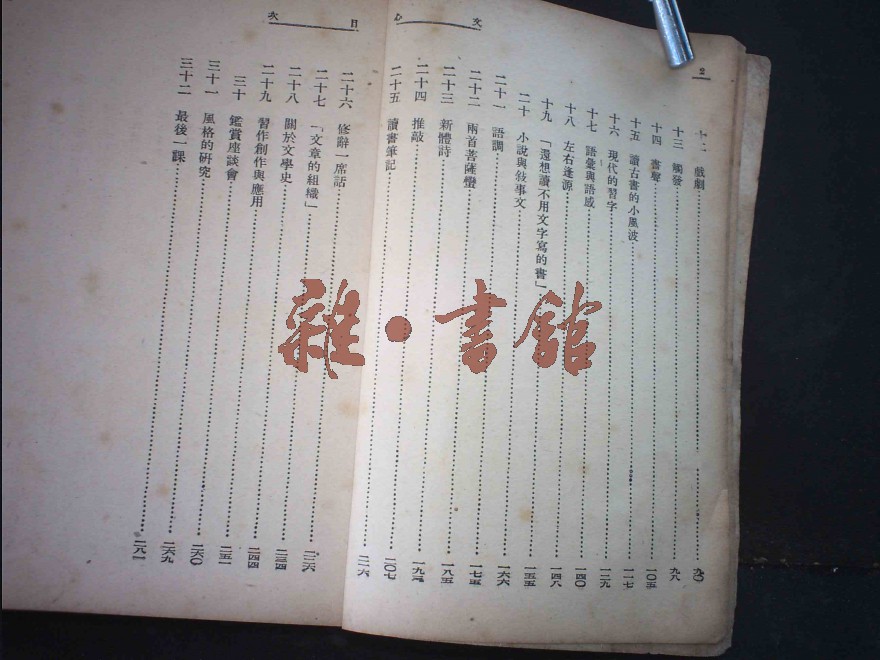 2
文心
目次
十二 戲劇 九〇
十三 觸發 九八
十四 書聲 一〇五
十五 讀古書的小風波 一一七
十六 現代的習字 一二九
十七 語彙與語感 一四〇
十八 左右逢源 一四八
十九 「還想讀不用文字寫的書」 一五五
二十 小說與敘事文 一六六
二十一 語調 一七五
二十二 兩首菩薩蠻 一八五
二十三 新體詩 一九三
二十四 推敲 二〇七
二十五 讀書筆記 二一六
二十六 修辭一席話 二二六
二十七 「文章的組織」 二三四
二十八 關於文學史 二四四
二十九 習作創作與應用 二五一
三十 鑑賞座談會 二六〇
三十一 風格的研究 二六九
三十二 最後一課 二八一
雜·書館